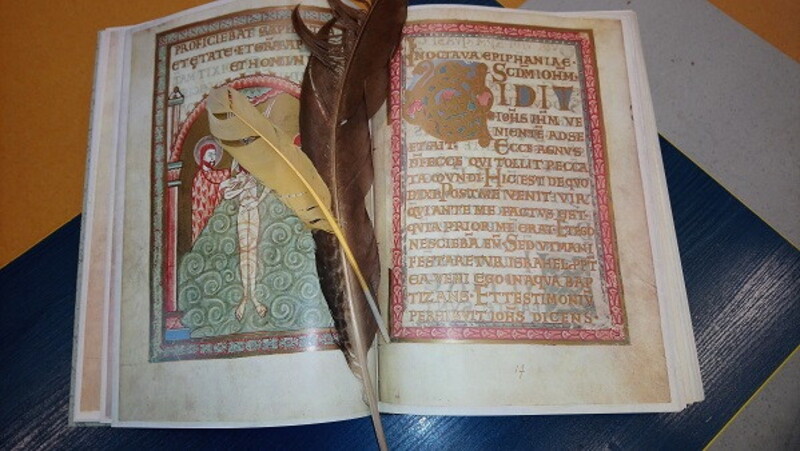 PROFICIEBAT
ET ETATE · ET
ET HOMIN
IN OCTAVA EPIPHANIAE ·
SCDM IOHM ·
VIDIT
IOHS IHM VE
NIENTĒ AD SE
ET AIT · ECCE AGNVS
DI ECCE QVI TOLLIT PECCA
TA MVNDI · HIC EST DE QVO
DIXI · POST ME VENIT VIR
QVI ANTE ME FACTVS EST ·
QVIA PRIOR ME ERAT · ET EGO
NESCIEBA EV̄ · SED VT MANI
FESTARETVR ISRAHEL · PPT
EA VENI EGO IN AQVA BAP
TIZANS · ET TESTIMONIV̄
PERHIBVIT IOHS DICENS